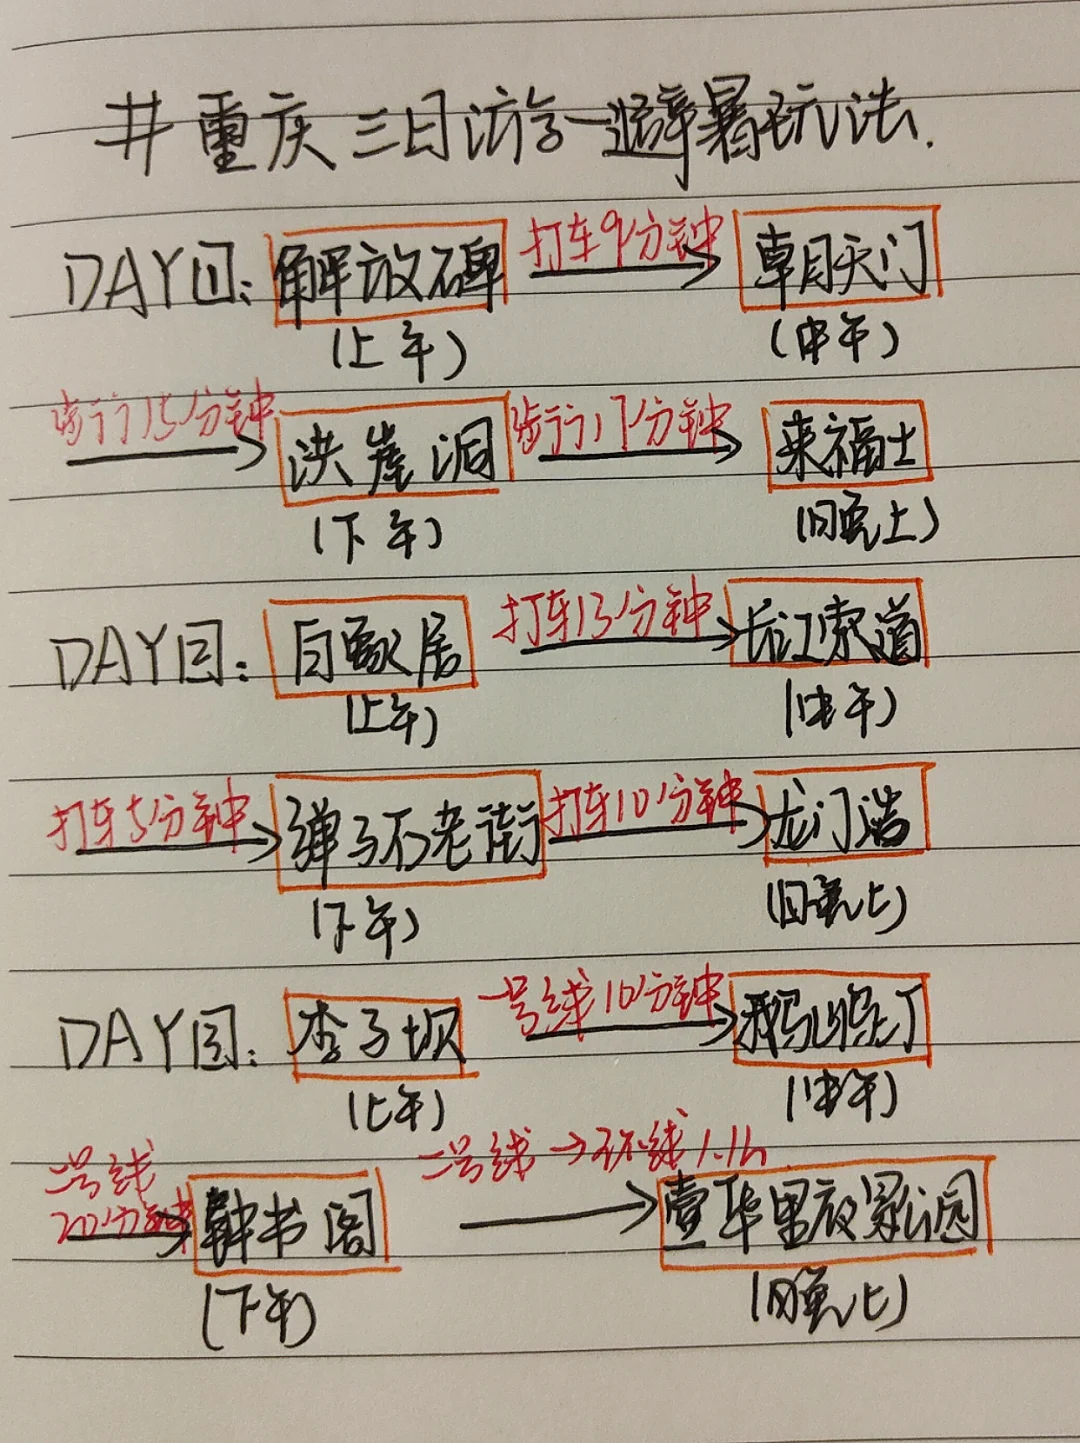 #重庆三日游—避暑玩法.
DAY1: 解放碑 打车9分钟 朝天门
(上午) (中午)
步行15分钟 洪崖洞 步行17分钟 来福士
(下午) (晚上)
DAY2: 白象居 打车13分钟 长江索道
(上午) (中午)
打车5分钟 弹子石老街 打车10分钟 龙门浩
(下午) (晚上)
DAY3: 李子坝 一号线10分钟 鹅岭二厂
(上午) (中午)
二号线20分钟 钟书阁 二号线→环线1.1h 壹华里夜景公园
(下午) (晚上)